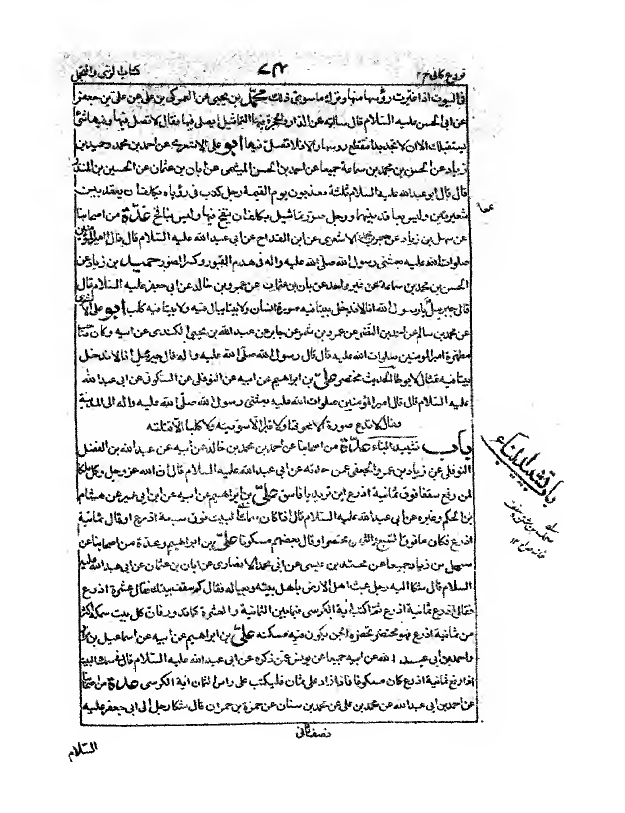 كتاب الزي والتجمل
فروع كافي ج ٢
في البيوت اذا غيرت رؤسها منها وترك ما سوى ذلك محمد بن يحيى عن العمركي بن علي عن علي بن جعفر
عن ابي الحسن عليه السلام قال سالته عن الدار والحجرة فيها التماثيل ايصلى فيها فقال لا تصل فيها وفيها شئ
يستقبلك الا ان لا تجد بدا فتقطع رؤسها والا فلا تصل فيها ابو علي الاشعري عن احمد بن محمد وحميد بن
زياد عن الحسن بن محمد بن سماعة جميعا عن احمد بن الحسن الميثمي عن ابان بن عثمان عن الحسين بن المنذر
قال قال ابو عبد الله عليه السلام ثلثة معذبون يوم القيمة رجل كذب في رؤياه يكلف ان يعقد بين
شعيرتين وليس بعاقد بينهما ورجل صور تماثيل يكلف ان ينفخ فيها وليس بنافخ عدة من اصحابنا
عن سهل بن زياد عن جعفر بن محمد الاشعري عن ابن القداح عن ابي عبد الله عليه السلام قال قال امير المؤمنين
صلوات الله عليه بعثني رسول الله صلى الله عليه واله في هدم القبور وكسر الصور حميد بن زياد عن
الحسن بن محمد بن سماعة عن غير واحد عن ابان بن عثمان عن عمرو بن خالد عن ابي جعفر عليه السلام قال
قال جبرئيل يا رسول الله انا لا ندخل بيتا فيه صورة انسان ولا بيتا يبال فيه ولا بيتا فيه كلب ابو علي الاشعري
عن محمد بن سالم عن احمد بن النضر عن عمرو بن شمر عن جابر عن عبد الله بن يحيى الكندي عن ابيه وكان صاحب
مطهرة امير المؤمنين صلوات الله عليه قال قال رسول الله صلى الله عليه واله قال جبرئيل انا لا ندخل
بيتا فيه تمثال لا يوطأ الحديث مختصر علي بن ابراهيم عن ابيه عن النوفلي عن السكوني عن ابي عبد الله
عليه السلام قال قال امير المؤمنين صلوات الله عليه بعثني رسول الله صلى الله عليه واله الى المدينة
فقال لا تدع صورة الا محوتها ولا قبرا الا سويته ولا كلبا الا قتلته
باب تشييد البناء عدة من اصحابنا عن احمد بن محمد بن خالد عن ابيه عن عبد الله بن الفضل
النوفلي عن زياد بن عمرو الجعفي عن حدثه عن ابي عبد الله عليه السلام قال ان الله عز وجل وكل ملكا
لمن رفع سقفا فوق ثمانية اذرع اين تريد يا فاسق علي بن ابراهيم عن ابيه عن ابن ابي عمير عن هشام
بن الحكم وغيره عن ابي عبد الله عليه السلام قال اذا كان سمك البيت فوق سبعة اذرع او قال ثمانية
اذرع فكان ما فوق السبع والثمان محتضر وقال بعضهم مسكونا علي بن ابراهيم وعدة من اصحابنا عن
سهل بن زياد جميعا عن محمد بن عيسى عن ابي محمد الانصاري عن ابان بن عثمان عن ابي عبد الله عليه
السلام قال شكا اليه رجل عبث اهل الارض باهل بيته وبعياله فقال كم سقف بيتك فقال عشرة اذرع
فقال اذرع ثمانية اذرع ثم اكتب اية الكرسي فيما بين الثمانية والعشرة كما تدور فان كل بيت سمكه اكثر
من ثمانية اذرع فهو محتضر تحضره الجن يكون فيه مسكنه علي بن ابراهيم عن ابيه عن اسماعيل بن مرار
واحمد بن ابي عبد الله عن ابيه جميعا عن يونس عن ذكره عن ابي عبد الله عليه السلام قال في سمك البيت
اذا رفع ثمانية اذرع كان مسكونا فاذا زاد على ثمان فليكتب على راس الثمان اية الكرسي عدة من اصحابنا
عن احمد بن ابي عبد الله عن محمد بن علي عن محمد بن سنان عن حمزة بن حمران قال شكا رجل الى ابي جعفر عليه
نصف ثاني
السلام
باب تشييد البناء